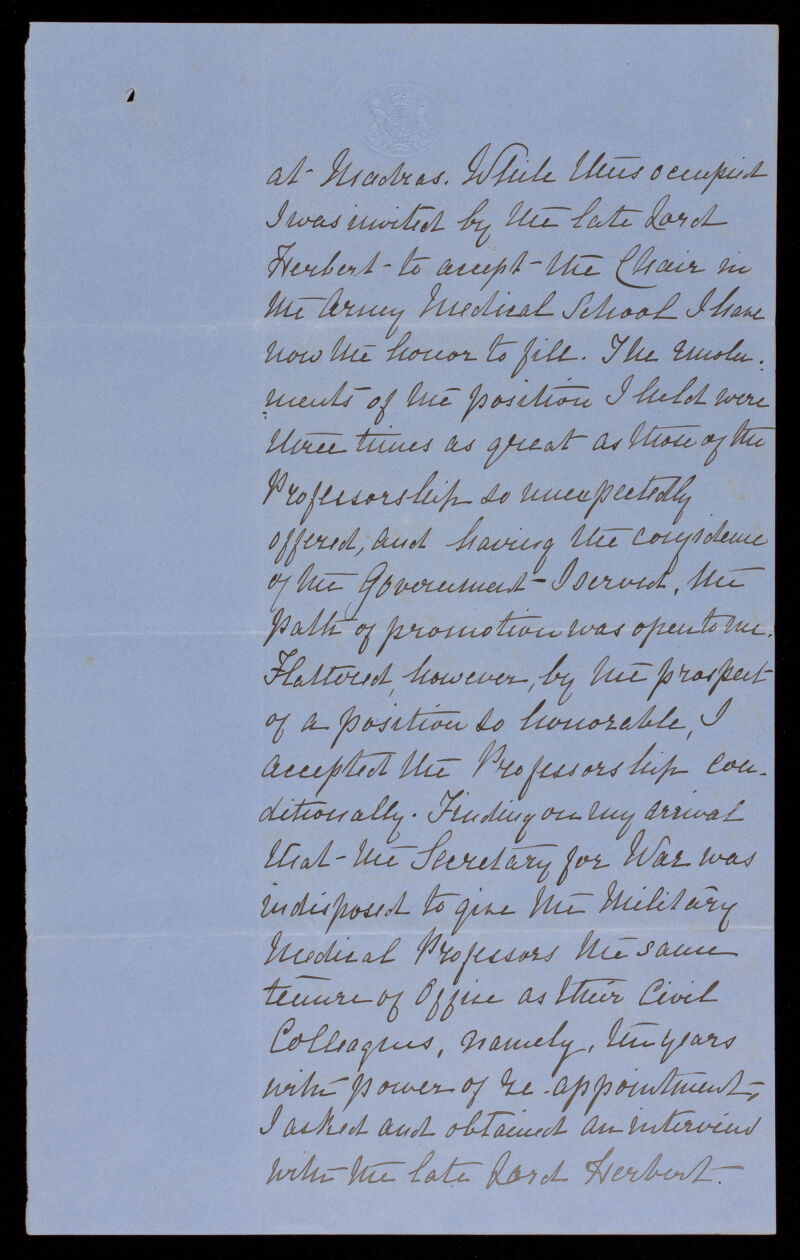 at Madras. While thus occupied
I was invited by the late Lord
Herbert to accept the Chair in
the Army Medical School I have
now the honor to fill. The emolu-
ments of the position I held were
three times as great as those of the
Professorship so unexpectedly
offered, and having the confidence
of the Government I served, the
path of promotion was open to me.
Flattered, however, by the prospect
of a position so honorable, I
accepted the Professorship con-
ditionally. Finding on my arrival
that the Secretary for War was
indisposed to give the Military
Medical Professors the same
tenure of Office as their Civil
Colleagues, namely, ten years
with power of re-appointment,
I asked and obtained an interview
with the late Lord Herbert.